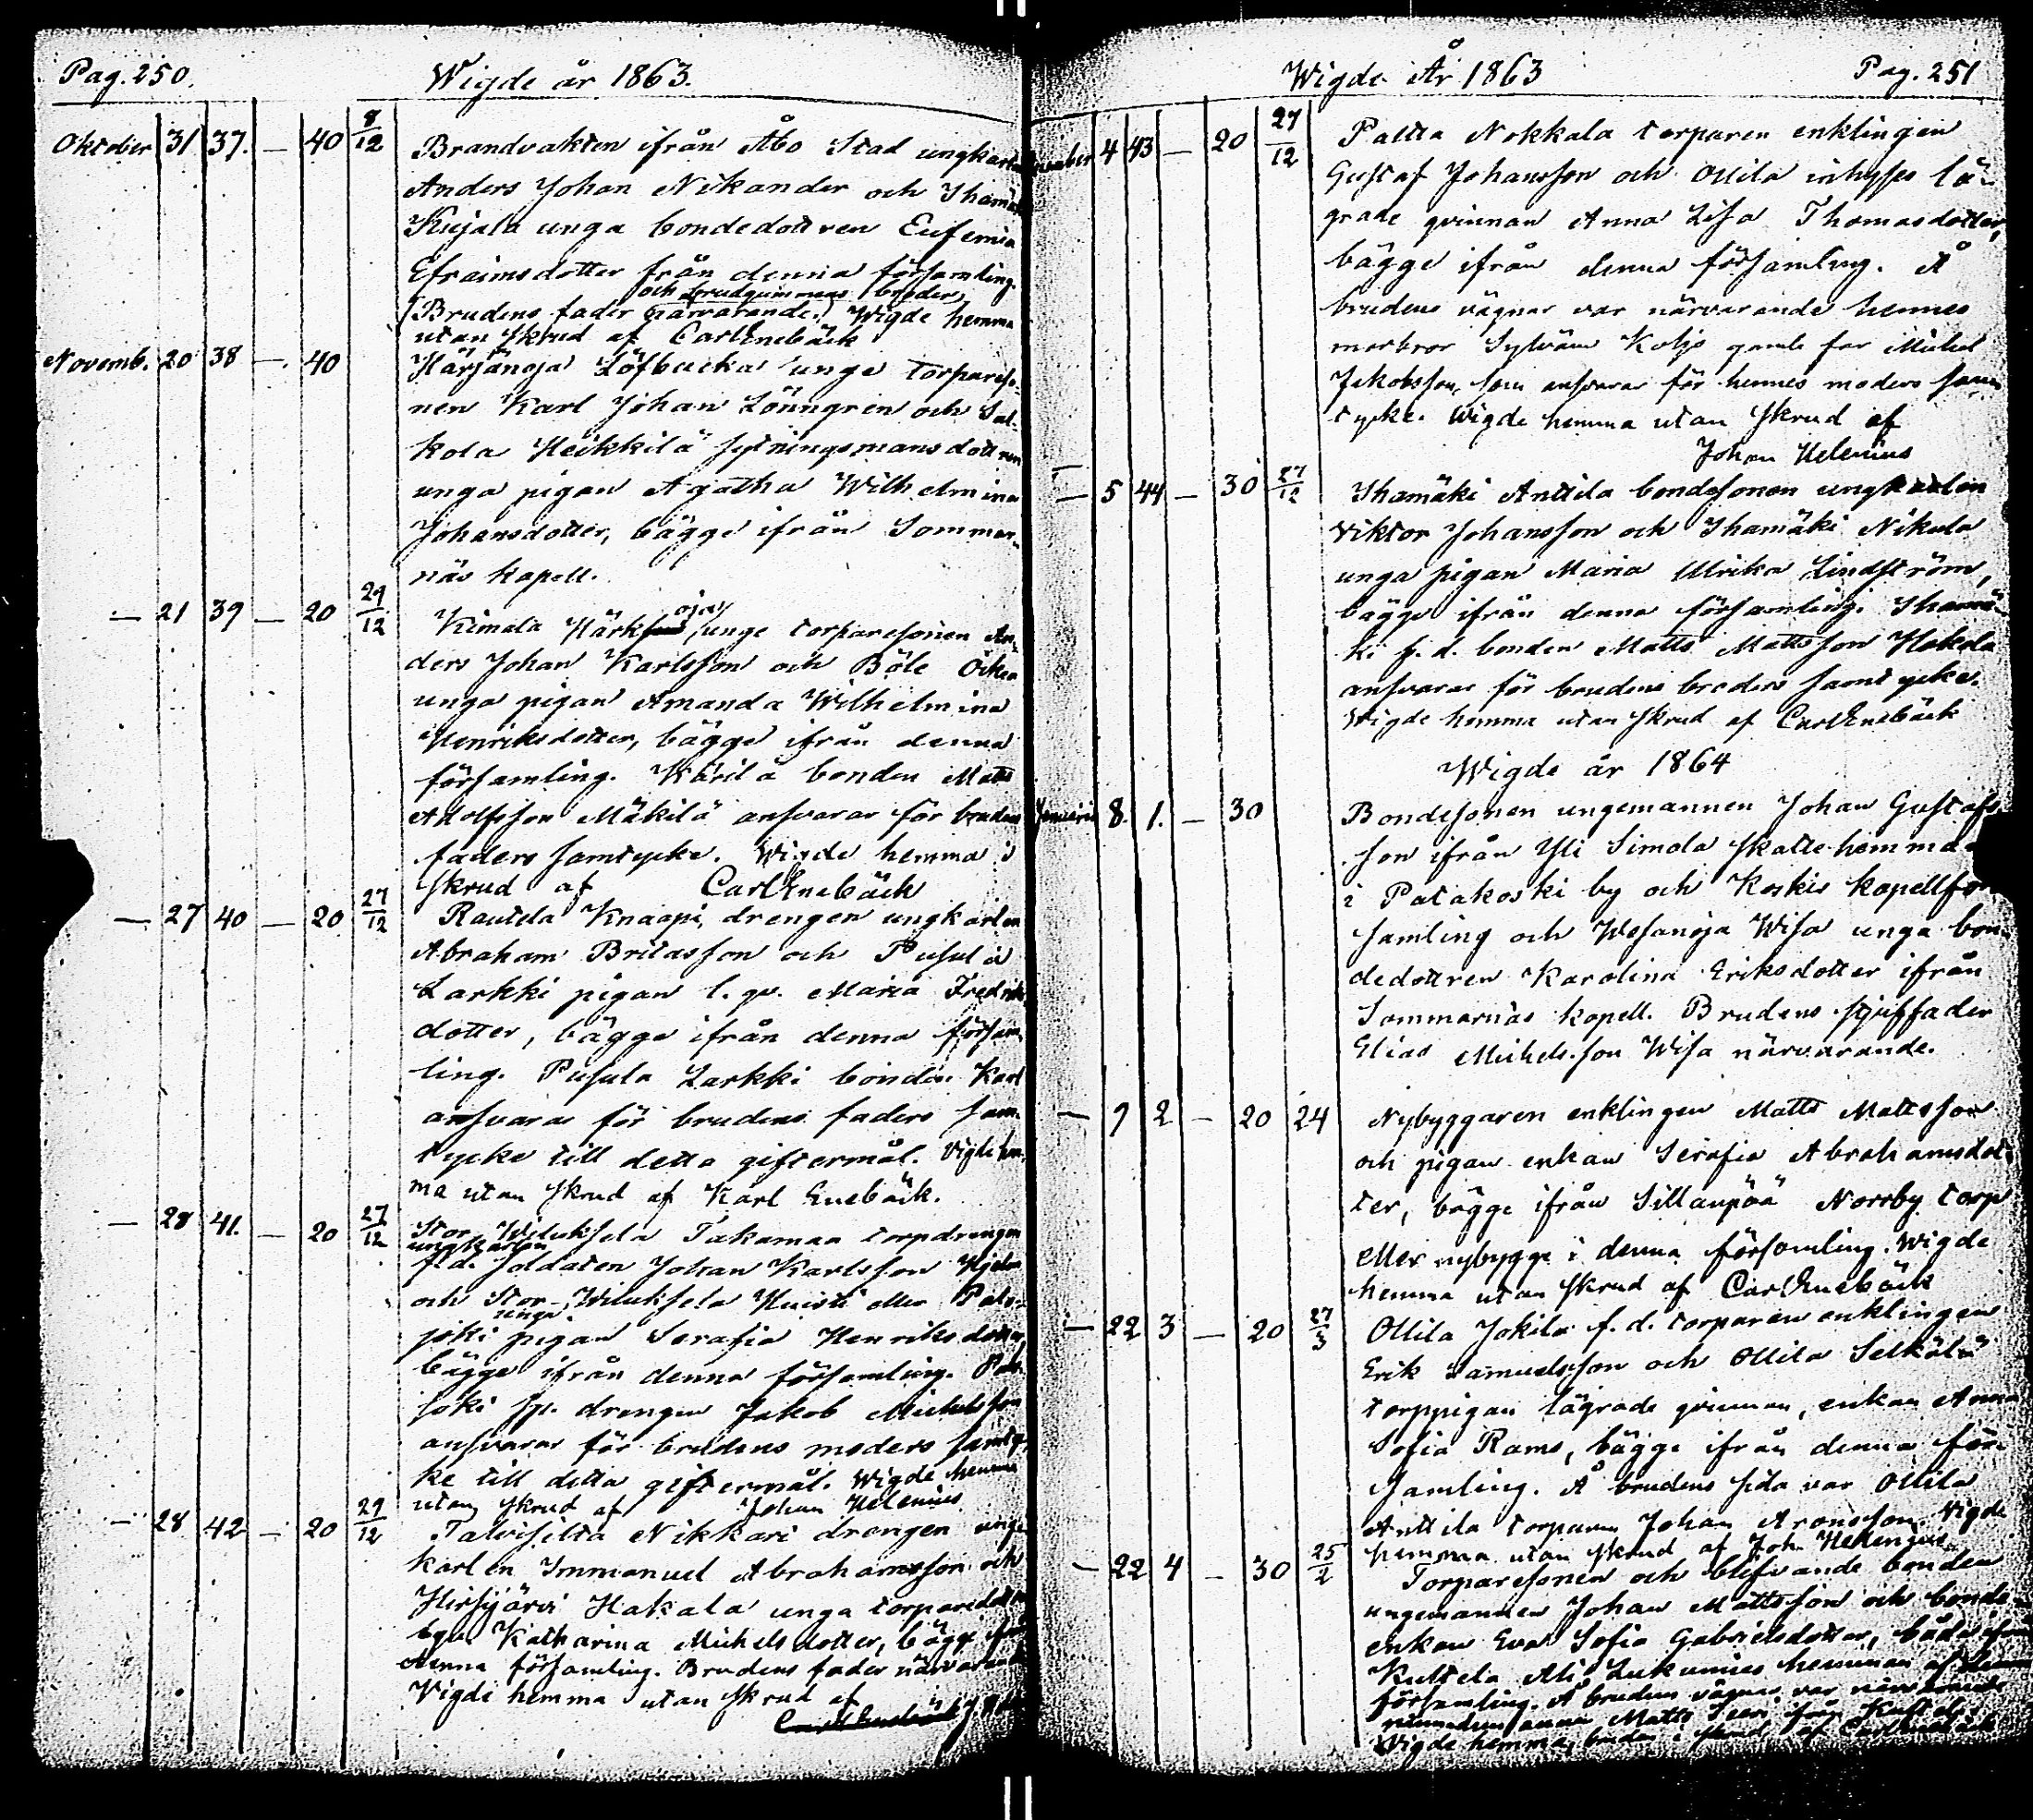 Pag. 250. Wigde år 1863.
Oktober 31 37. — 40 8/12 Brandvakten ifrån Åbo Stad ungkarlen
Anders Johan Nikander och Ihamäki
Kujala unga bondedottren Eufemia
Efraimsdotter från denna församling.
och brudgummens broder
(Brudens fader närvarande.) Wigde hemma
utan skrud af Carl Enebäck
Novemb. 20 38 — 40 Härjänoja Löfbacka unge torpareso-
nen Karl Johan Lönngren och Sal-
kola Heikkilä sytningsmansdottren
unga pigan Agatha Wilhelmina
Johansdotter, bägge ifrån Sommar-
näs kapell.
— 21 39 — 20 29/12 Kimala Härksoja, unge torparesonen An-
ders Johan Karlsson och Böle
unga pigan Amanda Wilhelmina
Henriksdotter, bägge ifrån denna
församling. Kärilä bonden Matts
Adolfsson Mäkilä ansvarar för brudens
faders samtycke. Wigde hemma i
skrud af Carl Enebäck
— 27 40 — 20 27/12 Rautela Knaapi, drengen ungkarlen
Abraham Britasson och Pusula
Larkki pigan l. qv. Maria Fredriks
dotter, bägge ifrån denna försam-
ling. Pusula Larkki bonden Karl
ansvarar för brudens faders sam-
tycke till detta giftermål. Vigde hem-
ma utan skrud af Karl Enebäck.
— 28 41. — 20 27/12 Stor Wiluksela Takamaa torpdrengen
ungkarlen
f. d. soldaten Johan Karlsson Hjelm
och Stor-Wiluksela Huisti eller Palo-
unga
joki pigan Serafia Henriksdotter,
bägge ifrån denna församling. Palo-
joki drengen Jakob Michelsson
ansvarar för brudens moders samtyc-
ke till detta giftermål. Wigde hemma
utan skrud af Johan Helenius
— 28 42 — 20 29/12 Talvisilta Nikkari drengen ung-
karlen Immanuel Abrahamsson och
Hirsijärvi Hakala unga torparedottren
Katharina Michelsdotter, bägge från
denna församling. Brudens fader närvarande
Vigde hemma utan skrud af
Wigde År 1863 Pag. 251
December 4 43 — 20 27/12 Paltta Nokkala torparen enklingen
Gustaf Johansson och Ollila inhyses lä-
grade qvinnan Anna Lisa Thomasdotter,
bägge ifrån denna församling. Å
brudens vägnar var närvarande hennes
morbror Sylvänä Koljo gamle far Michel
Jakobsson, som ansvarar för hennes moders sam-
tycke. Wigde hemma utan skrud af
Johan Helenius
— 5 44 — 30 27/12 Ihamäki Anttila bondesonen ungkarlen
Viktor Johansson och Ihamäki Nikula
unga pigan Maria Ulrika Lindström,
bägge ifrån denna församling. Ihamä-
ki f. d. bonden Matts Mattsson Hakala
ansvarar för brudens broders samtycke.
Wigde hemma utan skrud af Carl Enebäck
Wigde år 1864
Januarii 8. 1. — 30 Bondesonen ungemannen Johan Gustafs-
son ifrån Yli Simola skattehemman
i Patakoski by och Koskis kapellför-
samling och Wesanoja Wisa unga bon-
dedottren Karolina Eriksdotter ifrån
Sommarnäs kapell. Brudens stjuffader
Elias Michelsson Wisa närvarande.
— 9 2 — 20 24 Nybyggaren enklingen Matts Mattsson
och pigan enkan Serafia Abrahamsdot-
ter, bägge ifrån Sillanpää Norrby torp
eller nybygge i denna församling. Wigde
hemma utan skrud af Carl Enebäck
— 22 3 — 20 27/3 Ollila Jokila f. d. torparen enklingen
Erik Samuelsson och Ollila Selkälä
torppigan lägrade qvinnan, enkan Anna
Sofia Rams, bägge ifrån denna för-
samling. Å brudens sida var Ollila
Anttila torparen Johan Aronsson. Vigde
hemma utan skrud af Joh. Helenius
— 22 4 — 30 25/2 Torparesonen och blifvande bonden
ungemannen Johan Mattsson och bonde-
enkan Eva Sofia Gabrielsdotter, både ifrån
Kultela Ali Lukumies hemman af denna
församling. Å brudens vägnar var närvarande
Matts ifrån Kultela
Wigde hemma, skrud af Carl Enebäck